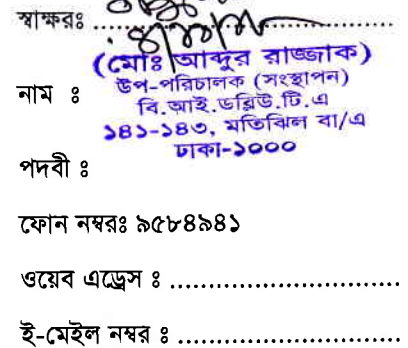 স্বাক্ষরঃ ........................................
(মোঃ আব্দুর রাজ্জাক)
উপ-পরিচালক (সংস্থাপন)
নাম ঃ
বি.আই.ডব্লিউ.টি.এ
১৪১-১৪৩, মতিঝিল বা/এ
ঢাকা-১০০০
পদবী ঃ
ফোন নম্বরঃ ৯৫৮৪৯৪১
ওয়েব এড্রেস ঃ ................................
ই-মেইল নম্বর ঃ ...............................